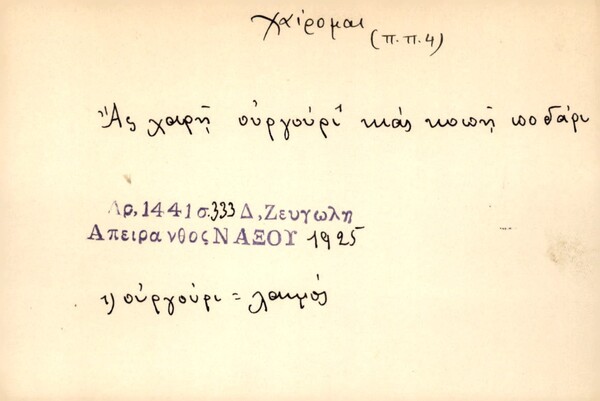 χαίρομαι
(π.π.4)
Ἂς χαρῇ οὐργούρι¹⁾ κιἂς κοπῇ ποδάρι
Αρ,1441 σ.333 Δ,Ζευγωλη
Απειρανθος ΝΑΞΟΥ 1925
1) οὐργούρι = λαιμός